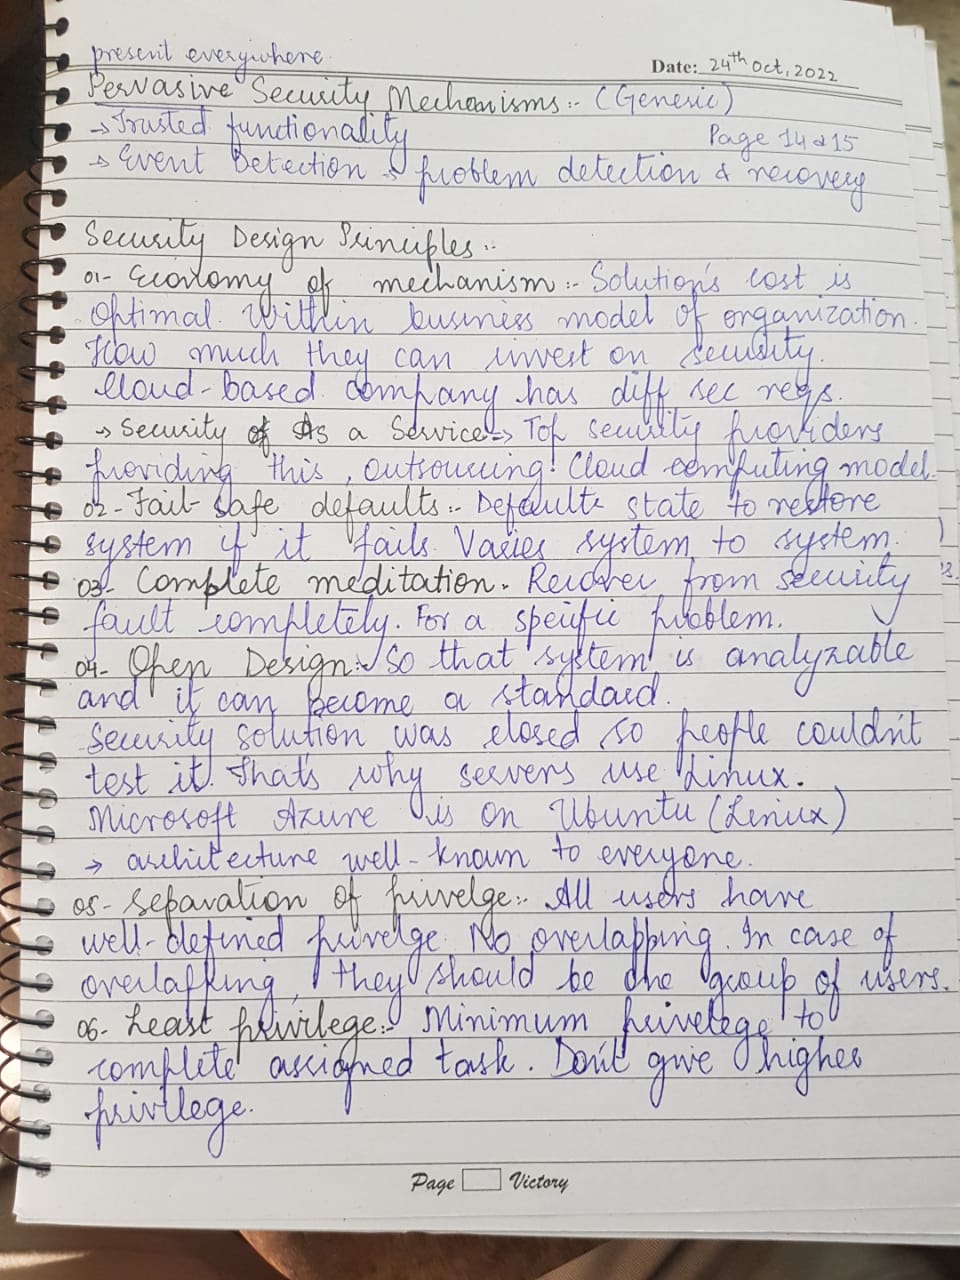 present everywhere.
Date: 24th Oct, 2022
Pervasive Security Mechanisms:- (Generic)
→ Trusted functionality
Page 14 & 15
→ Event Detection → problem detection & recovery
Security Design Principles:-
01- Economy of mechanism:- Solution's cost is
optimal within business model of organization.
How much they can invest on security.
Cloud-based company has diff sec reqs.
→ Security of As a Service → Top security providers
providing this, outsourcing! Cloud computing model.
02- Fail-Safe defaults:- Default state to restore
system if it fails. Varies system to system.
03- Complete meditation- Recover from security
fault completely. For a specific problem.
04- Open Design:- So that system is analyzable
and it can become a standard.
Security solution was closed so people couldn't
test it. That's why servers use Linux.
Microsoft Azure is on Ubuntu (Linux)
→ architecture well-known to everyone.
05- Separation of privelge:- All users have
well-defined privelge. No overlapping. In case of
overlapping, they should be one group of users.
06- Least privilege:- Minimum privelege to
complete assigned task. Don't give higher
privilege.
Page Victory